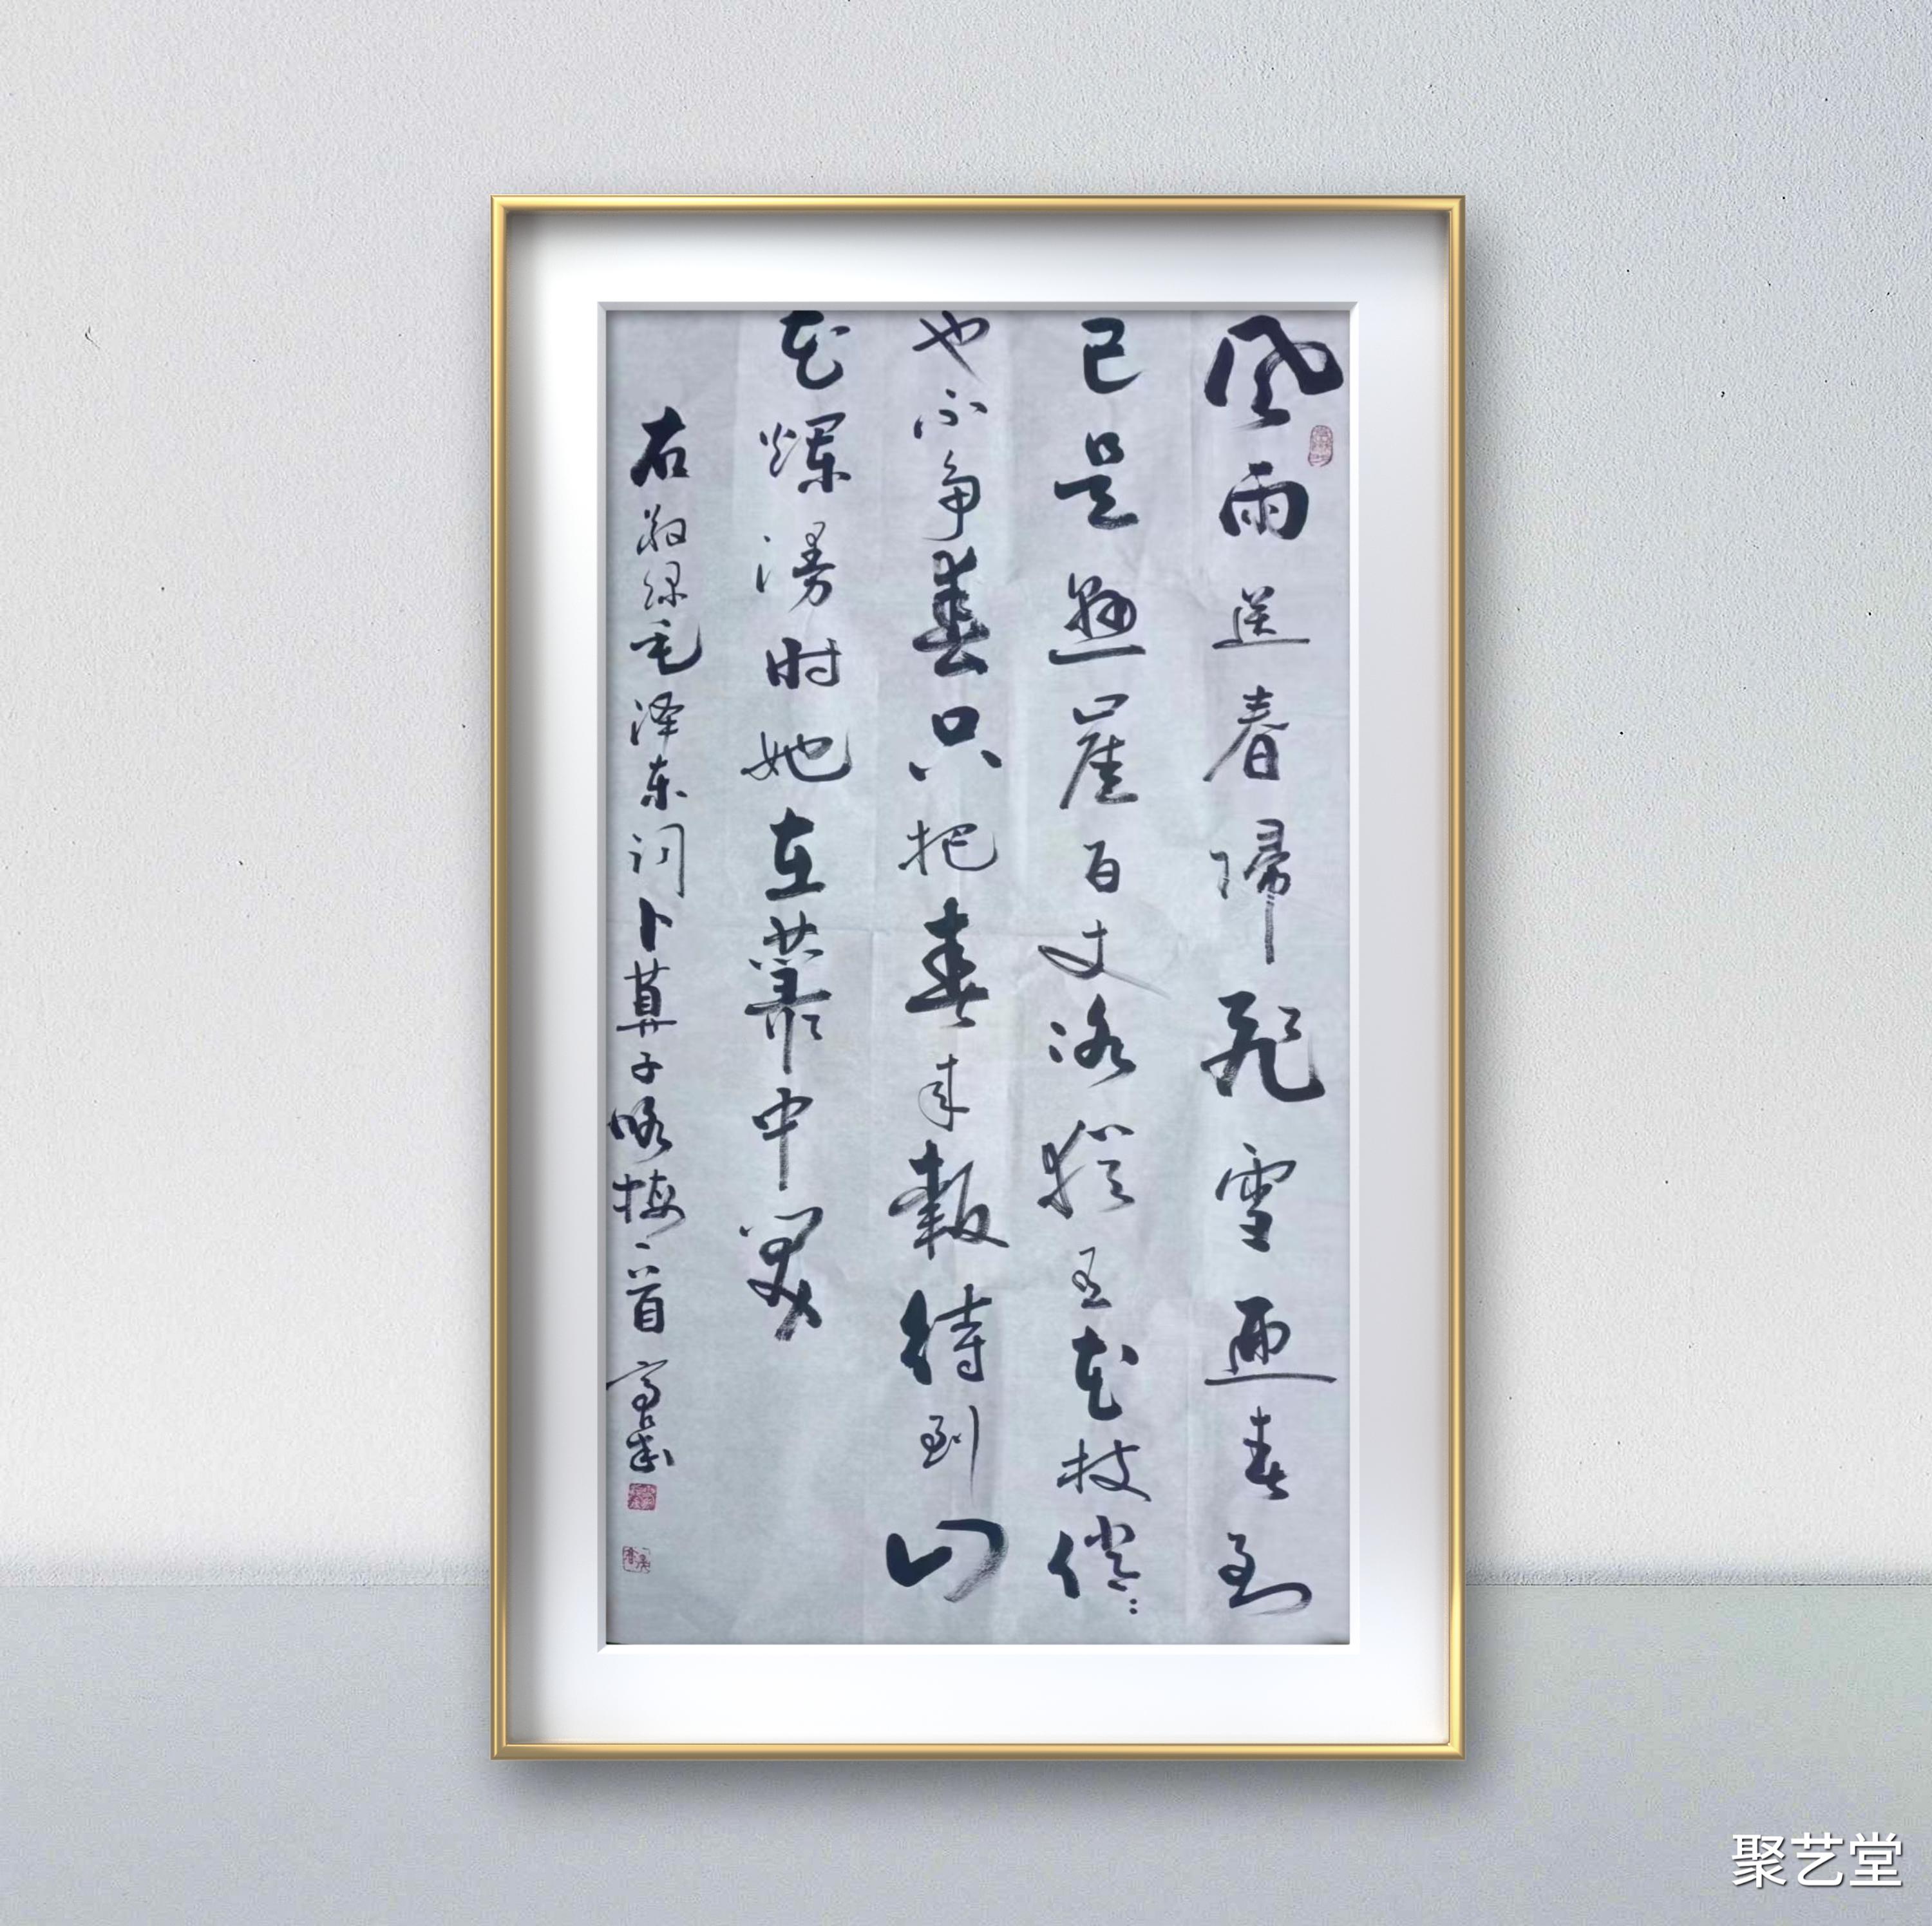 风雨送春歸飛雪迎春到
已是懸崖百丈冰猶有花枝俏
々也不争春只把春来報待到山
花爛漫时她在叢中笑
右敬録毛泽东词卜算子咏梅一首
聚艺堂